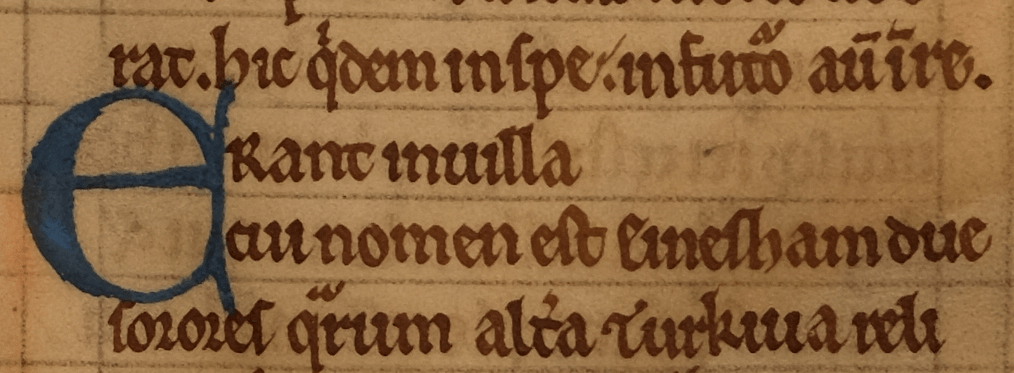 rat. hic q̓dem in spe. in futo᷑ aū in re.
ERant in uilla
cui nomen est Einesham due
sorores q̓rum alt̓a Turkiua reli